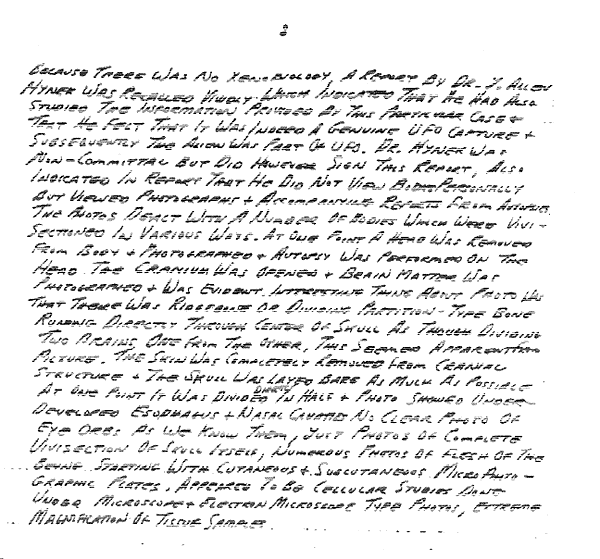 2
BECAUSE THERE WAS NO XENOBIOLOGY, A REPORT BY DR. J. ALLEN
HYNEK WAS RECALLED VIVIDLY WHICH INDICATED THAT HE HAD ALSO
STUDIED THE INFORMATION PROVIDED BY THIS PARTICULAR CASE +
THAT HE FELT THAT IT WAS INDEED A GENUINE UFO CAPTURE +
SUBSEQUENTLY THE ALIEN WAS PART OF UFO. DR. HYNEK WAS
NON-COMMITTAL BUT DID HOWEVER SIGN THIS REPORT, ALSO
INDICATED IN REPORT THAT HE DID NOT VIEW BODIE PERSONALLY
BUT VIEWED PHOTOGRAPHS + ACCOMPANYING REPORTS FROM AUTOPSIE.
THE PHOTOS DEALT WITH A NUMBER OF BODIES WHICH WERE VIVI-
SECTIONED IN VARIOUS WAYS. AT ONE POINT A HEAD WAS REMOVED
FROM BODY + PHOTOGRAPHED + AUTOPSY WAS PERFORMED ON THE
HEAD. THE CRANIUM WAS OPENED + BRAIN MATTER WAS
PHOTOGRAPHED + WAS EVIDENT. INTERESTING THING ABOUT PHOTO WAS
THAT THERE WAS RIDGEBONE OR DIVIDING PARTITION-TYPE BONE
RUNNING DIRECTLY THROUGH CENTER OF SKULL AS THOUGH DIVIDING
TWO BRAINS, ONE FROM THE OTHER, THIS SEEMED APPARENT FROM
PICTURE. THE SKIN WAS COMPLETELY REMOVED FROM CRANIAL
STRUCTURE + THE SKULL WAS LAYED BARE AS MUCH AS POSSIBLE
AT ONE POINT IT WAS DIVIDED DIRECTLY IN HALF + PHOTO SHOWED UNDER-
DEVELOPED ESOPHAGUS + NASAL CAVITIES NO CLEAR PHOTO OF
EYE ORBS AS WE KNOW THEM, JUST PHOTOS OF COMPLETE
VIVISECTION OF SKULL ITSELF, NUMEROUS PHOTOS OF FLESH OF THE
BEING STARTING WITH CUTANEOUS + SUBCUTANEOUS MICRO PHOTO-
GRAPHIC PLATES. APPEARED TO BE CELLULAR STUDIES DONE
UNDER MICROSCOPE + ELECTRON MICROSCOPE TYPE PHOTOS, EXTREME
MAGNIFICATION OF TISSUE SAMPLES